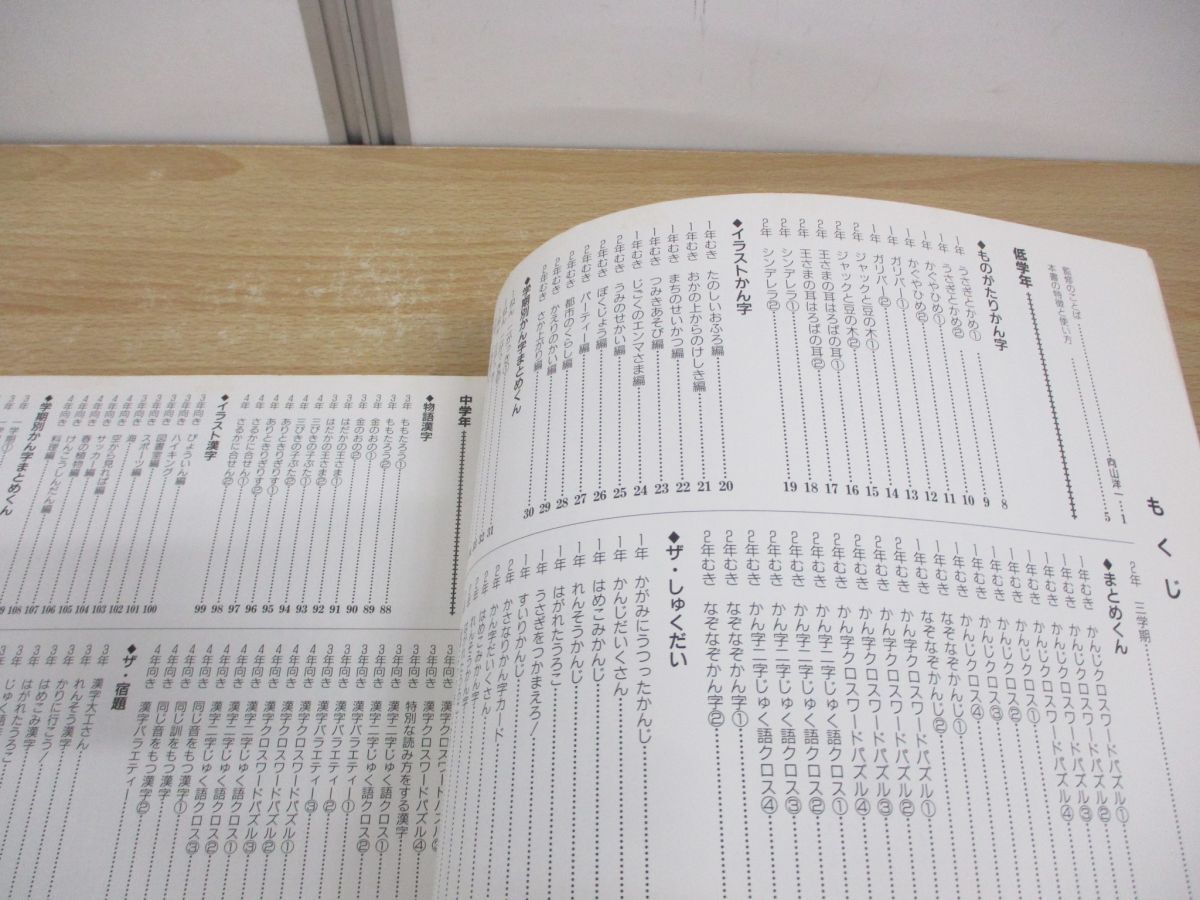 もくじ
監修のことば 向山洋一 1
本書の特徴と使い方 5
低学年
◆ものがたりかん字
1年 うさぎとかめ① 8
1年 うさぎとかめ② 9
1年 かぐやひめ① 10
1年 かぐやひめ② 11
1年 ガリバー① 12
1年 ガリバー② 13
2年 ジャックと豆の木① 14
2年 ジャックと豆の木② 15
2年 王さまの耳はろばの耳① 16
2年 王さまの耳はろばの耳② 17
2年 シンデレラ① 18
2年 シンデレラ② 19
◆イラストかん字
1年むき たのしいおふろ編 20
1年むき おかの上からのけしき編 21
1年むき まちのせいかつ編 22
1年むき つみきあそび編 23
1年むき じごくのエンマさま編 24
2年むき うみのせかい編 25
2年むき ぼくじょう編 26
2年むき パーティー編 27
2年むき 都市のくらし編 28
2年むき かえりのかい編 29
2年むき さか上がり編 30
◆学期別かん字まとめくん
31
32
2年 三学期
◆まとめくん
1年むき かんじクロスワードパズル①
1年むき かんじクロスワードパズル②
1年むき かんじクロスワードパズル③
1年むき かんじクロスワードパズル④
1年むき かんじクロス①
1年むき かんじクロス②
1年むき かんじクロス③
1年むき かんじクロス④
1年むき なぞなぞかんじ①
1年むき なぞなぞかんじ②
2年むき かん字クロスワードパズル①
2年むき かん字クロスワードパズル②
2年むき かん字クロスワードパズル③
2年むき かん字クロスワードパズル④
2年むき かん字二字じゅく語クロス①
2年むき かん字二字じゅく語クロス②
2年むき かん字二字じゅく語クロス③
2年むき かん字二字じゅく語クロス④
2年むき なぞなぞかん字①
2年むき なぞなぞかん字②
◆ザ・しゅくだい
1年 かがみにうつったかんじ
1年 かんじだいくさん
1年 はめこみかんじ
1年 れんそうかんじ
1年 はがれたうろこ
1年 うさぎをつかまえろ!
1年 すいりかんじ
2年 かさなりかん字カード
2年 かん字だいくさん
2年 はめこみかん字
2年 れんそうかん字
中学年
◆物語漢字
3年 ももたろう① 88
3年 ももたろう② 89
3年 金のおの① 90
3年 金のおの② 91
3年 はだかの王さま① 92
3年 はだかの王さま② 93
4年 三びきの子ぶた① 94
4年 三びきの子ぶた② 95
4年 ありときりぎりす① 96
4年 ありときりぎりす② 97
4年 さるかに合せん① 98
4年 さるかに合せん② 99
◆イラスト漢字
3年向き びょういん編 100
3年向き ハイキング 101
3年向き 図書室編 102
3年向き スポーツ編 103
3年向き 海 104
4年向き 空から見れば編
4年向き サッカー編 105
4年向き 春の植物編 106
4年向き けんこうしんだん編 107
4年向き 料理編 108
◆学期別かん字まとめくん
3年 一学期①
3年向き 特別な読み方をする漢字
3年向き 漢字二字じゅく語クロス①
3年向き 漢字二字じゅく語クロス②
3年向き 漢字バラエティー①
3年向き 漢字バラエティー②
3年向き 漢字バラエティー③
4年向き 漢字クロスワードパズル①
4年向き 漢字クロスワードパズル②
4年向き 漢字クロスワードパズル③
4年向き 漢字二字じゅく語クロス①
4年向き 漢字二字じゅく語クロス②
4年向き 漢字二字じゅく語クロス③
4年向き 同じ訓をもつ漢字①
4年向き 同じ音をもつ漢字②
4年向き 漢字バラエティー
◆ザ・宿題
3年 漢字大工さん
3年 れんそう漢字
3年 かりに行こう!
3年 はめこみ漢字
3年 はがれたうろこ
3年 じゅく語